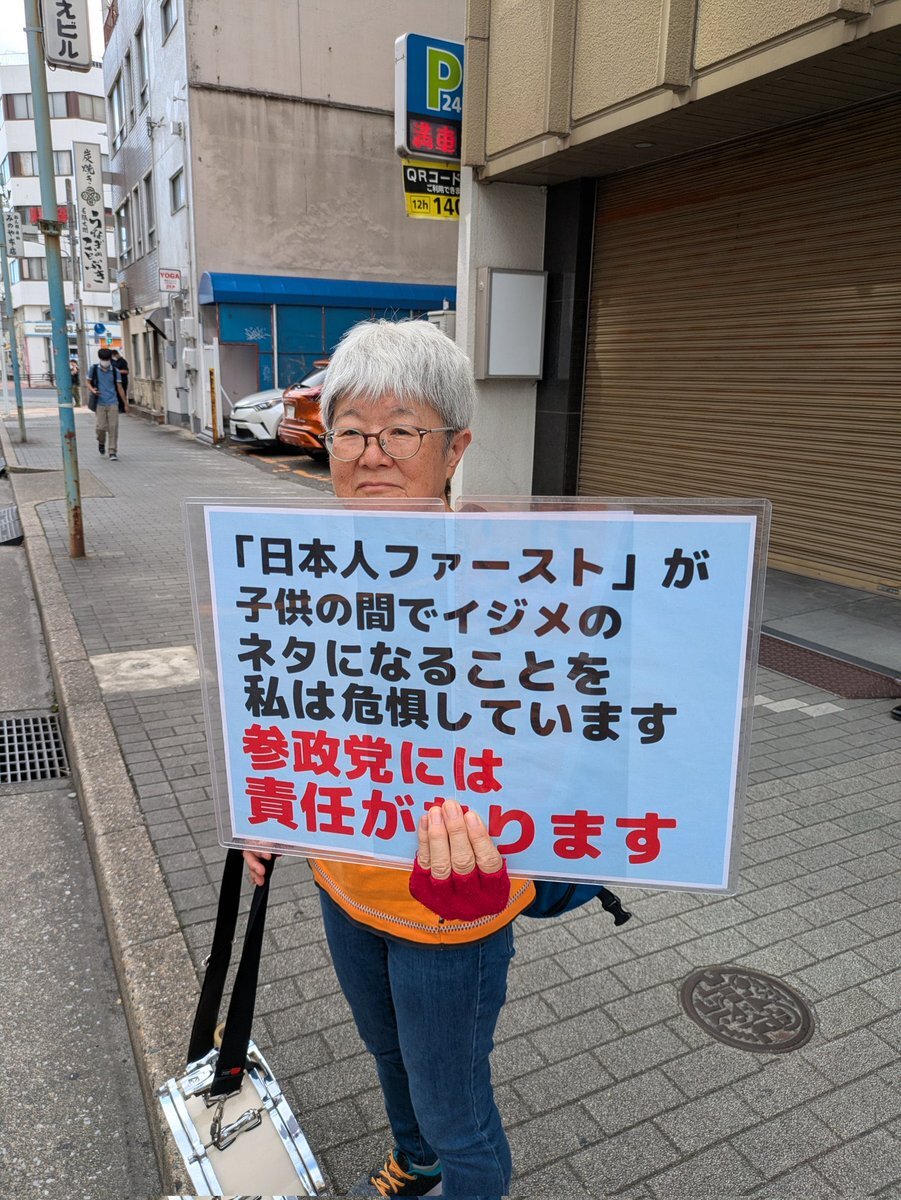 えビル
P
24
満車
QRコード
ご利用できま
12h 140
炭焼き
うなぎの
ことぶき
みのや本店
YOGA
「日本人ファースト」が
子供の間でイジメの
ネタになることを
私は危惧しています
参政党には
責任があります